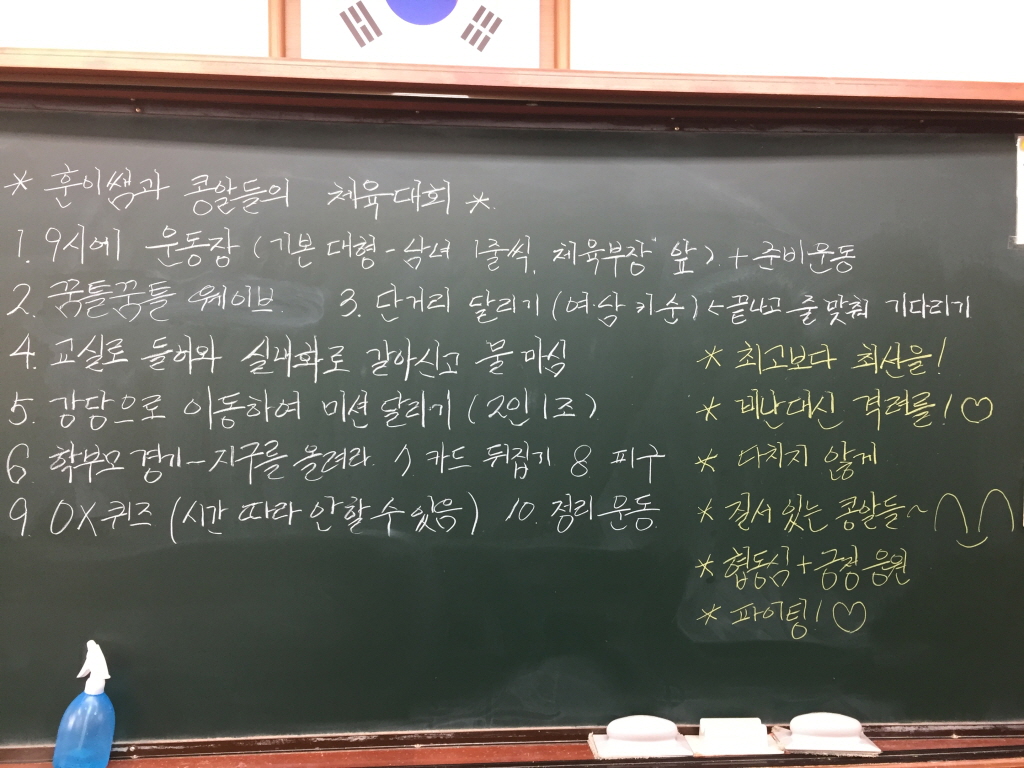 * 훈이쌤과 콩알들의 체육대회 *
1. 9시에 운동장 (기본 대형-남녀 1줄씩, 체육부장 앞) + 준비운동
2. 꿈틀꿈틀 웨이브 3. 단거리 달리기 (여남 키순) < 끝나고 줄 맞춰 기다리기
4. 교실로 들어와 실내화로 갈아신고 물 마심
5. 강당으로 이동하여 미션 달리기 (2인1조)
6 학부모 경기-지구를 올려라. 7 카드 뒤집기 8 피구
9. OX 퀴즈 (시간 따라 안할 수 있음) 10. 정리 운동
* 최고보다 최선을!
* 비난대신 격려를!♡
* 다치지 않게
* 질서 있는 콩알들~
* 협동심 + 긍정 응원
* 파이팅!♡